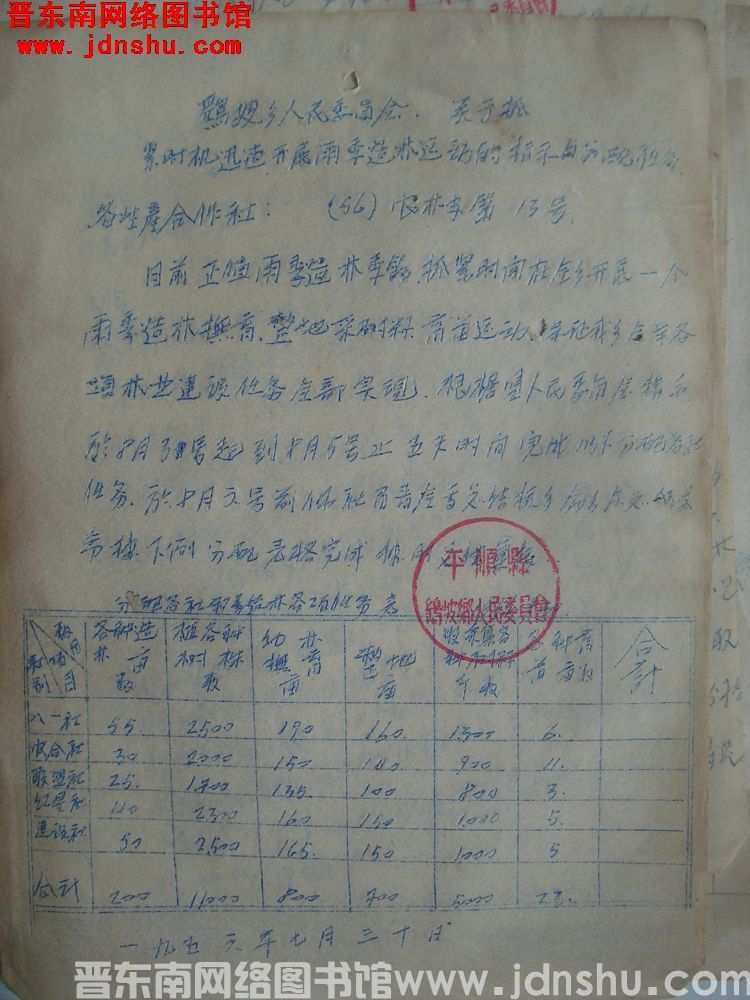 晋东南网络图书馆
www.jdnshu.com
鸡坡乡人民委员会 关于抓
紧时机迅速开展雨季造林运动的指示与分配任务
各生產合作社： (56) 农林字第13号
目前正值雨季造林季节，抓紧时间在全乡开展一个
雨季造林撫育，整地采树籽，育苗运动，保证我乡全年各
項林业建设任务全部实现，根据县人民委员会指示
於8月 号起到8月5号止五天时间完成
任务，於8月 号前
下列分配表格完成
平順縣
鷄坡鄉人民委員會
分配各社雨季造林各项任务表
项目 社别 各种造林亩数 植各种树株数 幼林撫育亩 整地亩 收采集各种树籽斤数 各种育苗亩数 合計
八一社 55 2500 190 160 1300 6
农合社 30 2000 150 140 900 4
联盟社 25 1700 135 100 800 3
红星社 40 2300 160 150 1000 5
建设社 50 2500 165 150 1000 5
合计 200 11000 800 700 5000 23
一九五六年七月三十日
晋东南网络图书馆 www.jdnshu.com